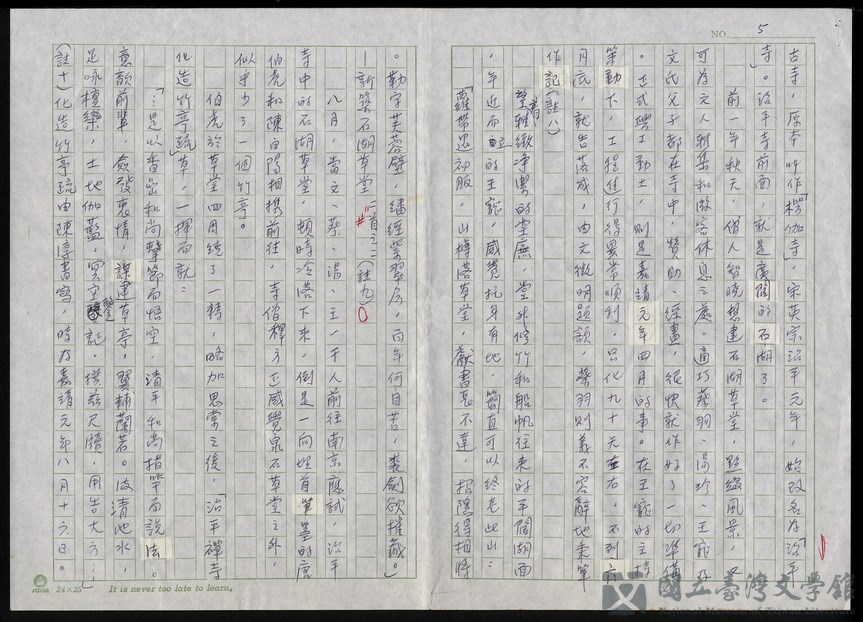 NO. 5
古寺，原本叫作「楞伽寺」，宋英宗治平元年，始改名為「治平
寺」。治平寺前面，就是廣闊的石湖了。
前一年秋天，僧人智曉想建石湖草堂，點綴風景，又
可為文人雅集和做客休息之處。適巧蔡羽、湯珍、王寵及
文氏父子都在寺中，贊助、經畫，很快就作好了一切準備
。正式興工動土，則是嘉靖元年四月的事。在王寵的主持
策動下，工程進行得異常順利，只化九十天左右，不到六
月底，就告落成，由文徵明題額，蔡羽則義不容辭地秉筆
作記（註八）
望着雅緻凈潔的堂廡，堂外修竹和船帆往來的平闊湖面
，年近而立的王寵，感覺托身有地，簡直可以終老此山：
「蘿帶還初服，山樽落草堂，獻書長不達，招隱得相將
。勒字芙蓉壁，繙經翡翠房，百年何自苦，裘劍欲摧藏。」
—新築石湖草堂二首之二（註九）
八月，當文、蔡、湯、王一干人前往南京應試，治平
寺中的石湖草堂，頓時冷落下來，倒是一向地有筆墨的唐
伯虎和陳白陽相携前往，寺僧釋方正感覺泉石草堂之外，
似乎少了一個竹亭。
伯虎於草堂四周繞了一轉，略加思索之後，「治平禪寺
化造竹亭疏」草，一揮而就：
「…是以香嚴和尚擊節而悟空，清平和尚指竿而說法。
意歆前輩，僉發衷情，謀建草亭，翼輔蘭若。後清池水，
足咏檀欒，土地伽藍，冥空鑒證，撰茲尺牘，用告大方…」
（註十）化造竹亭疏由陳淳書寫，時為嘉靖元年八月十六日。
24×25
It is never too late to learn.
國立臺灣文學館
National Museum of Taiwan Literature